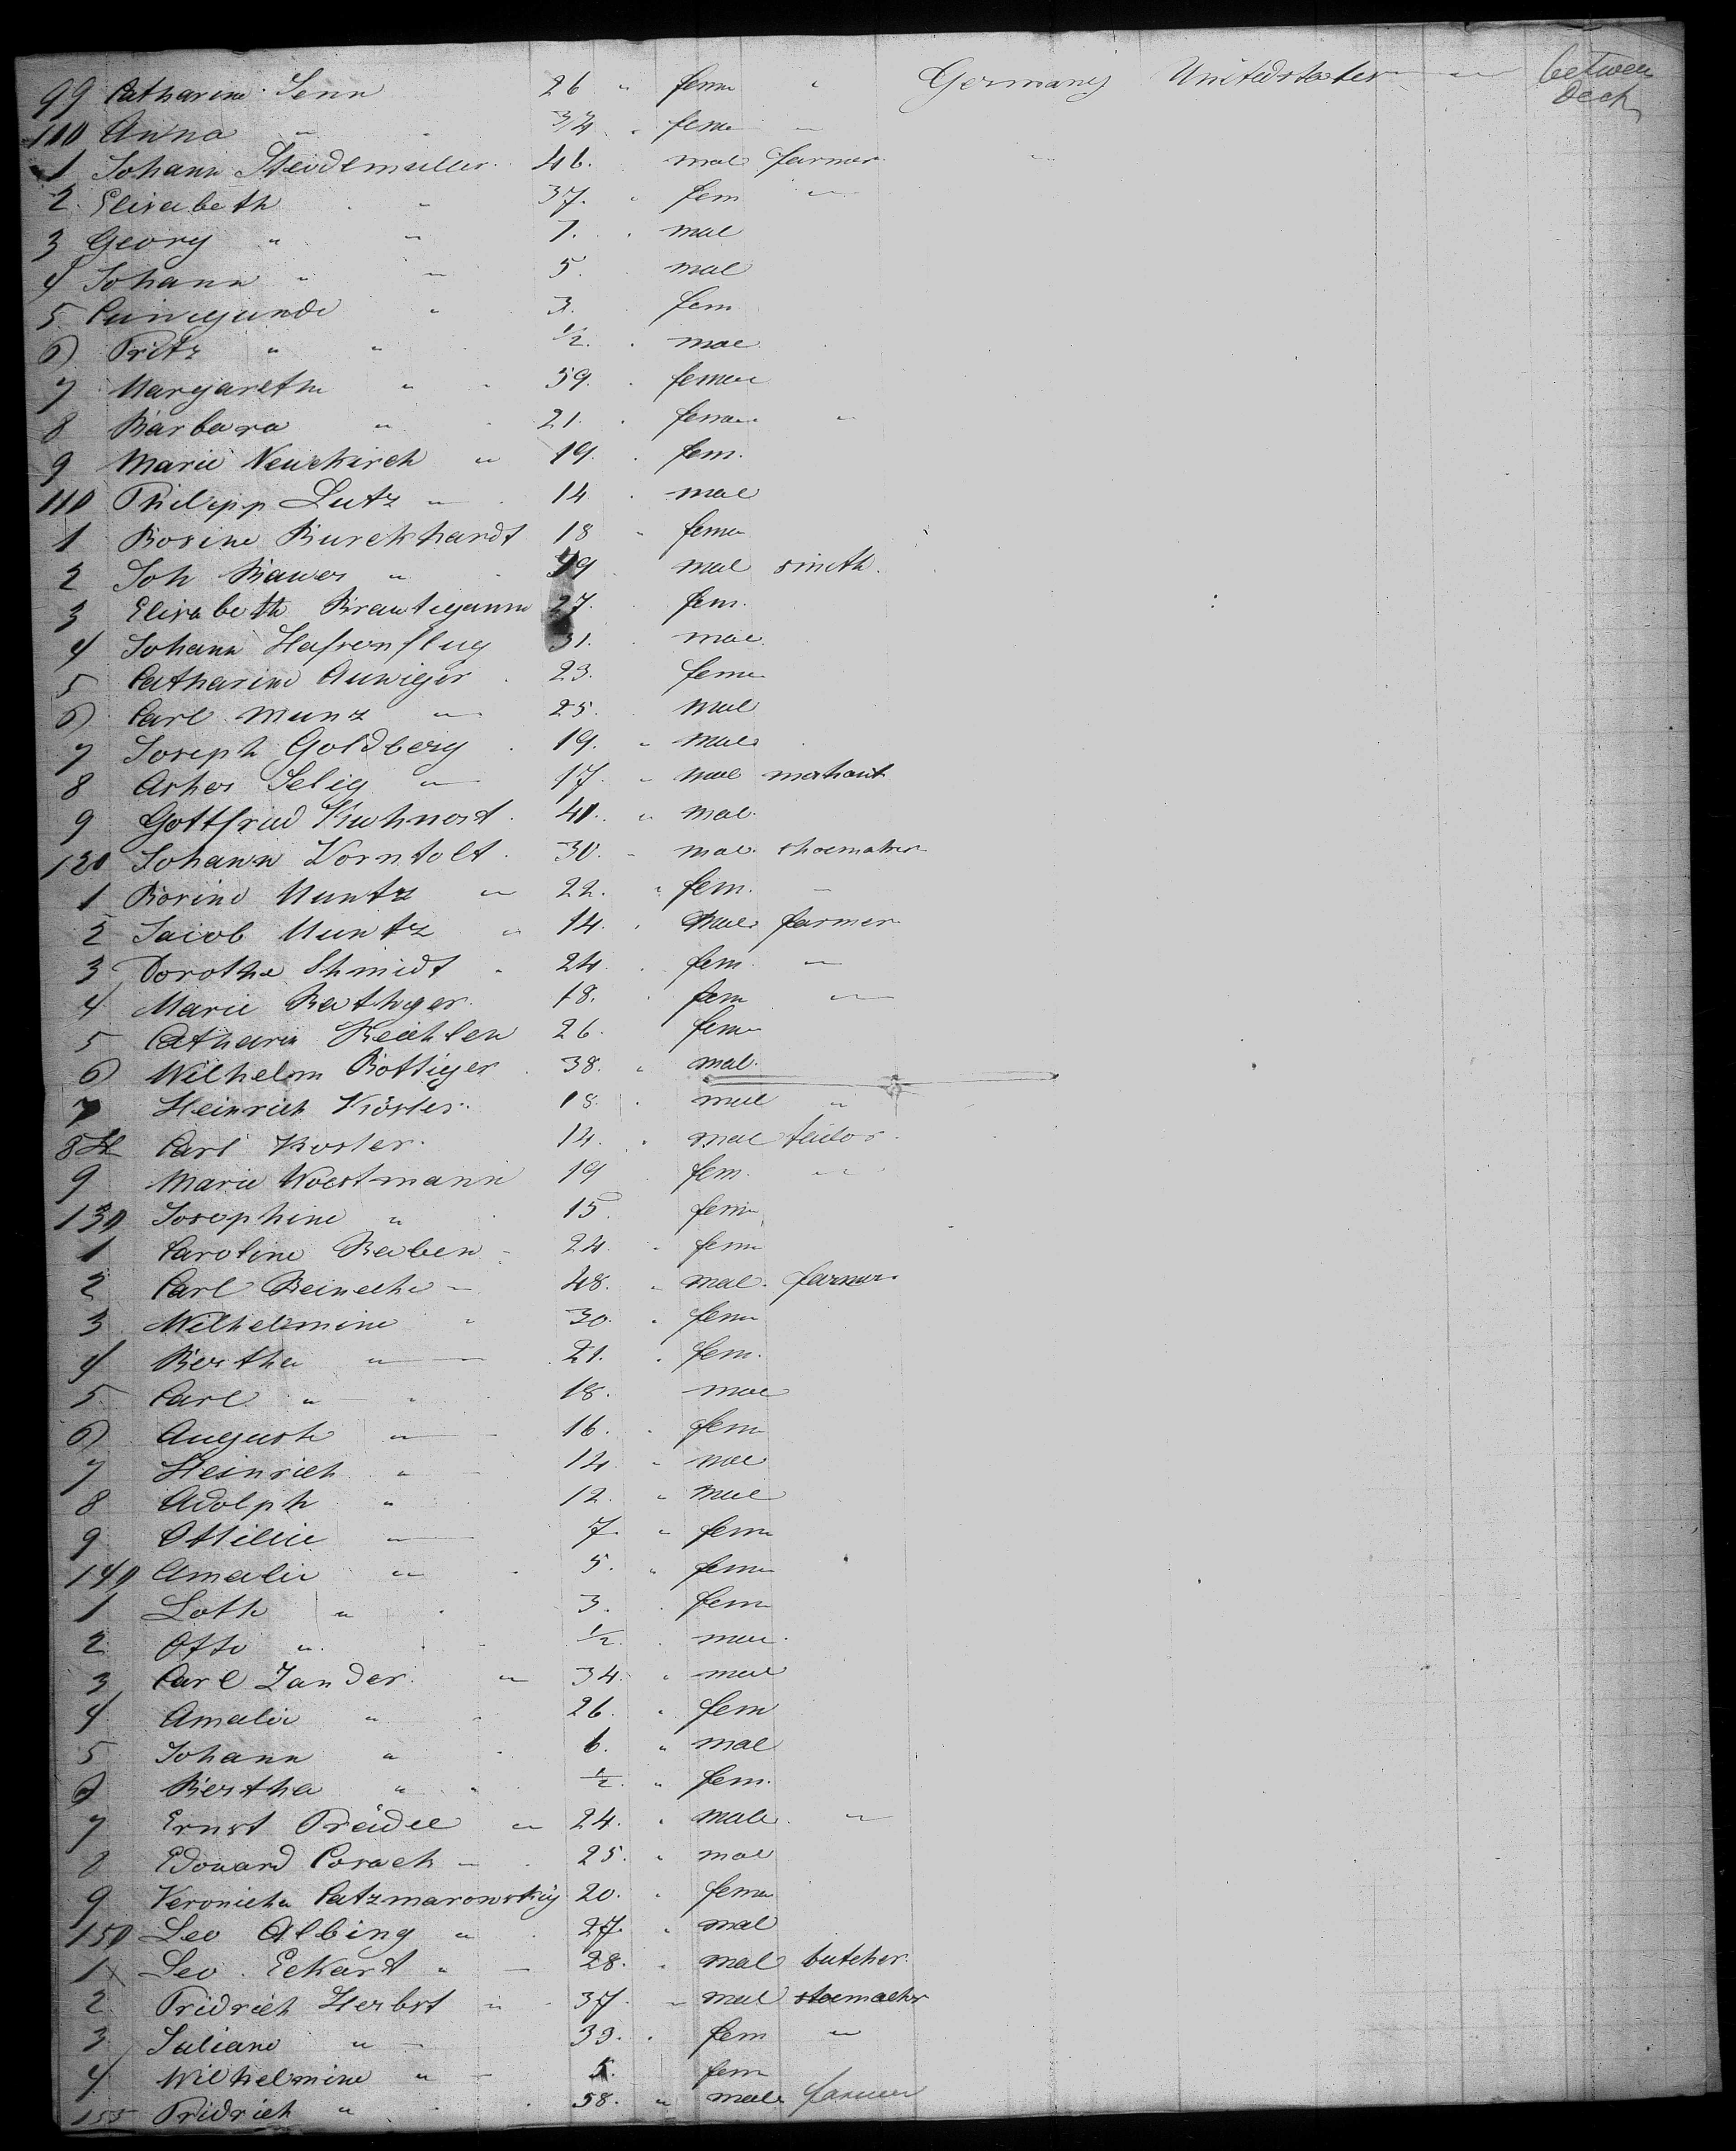 99 Catharine Senn 26 " fem " Germany Unitedstates " between Deck
100 Anna " " 34 " fem "
1 Johann Steudlmuller 46. mal farmer "
2 Elisabeth " 37. " fem "
3 Georg " " 7. " mal
4 Johann " " 5. mal
5 Cunegunde " 3. fem
6 Fritz " " 1/2. " mal
7 Margarethe " " 59. " fem
8 Barbara " " 21. " fem "
9 Marie Neuekirch " 19. " fem.
110 Philipp Lutz " 14 " mal
1 Rosine Burckhardt 18 " fem
2 Joh Bauer " mal smith.
3 Elisabeth Brautigamm 27. fem.
4 Johann Hasenflug 31. mal
5 Catharine 23. fem
6 Carl Munz " 25. mal
7 Joseph Goldberg 19. " mal
8 Asher Selig " 17. " mal
9 Gottfried 41. " mal
120 Johann Korntolt 30. " mal
1 Rosine Muntz " 22. " fem. "
2 Jacob Muntz " 14. " mal farmer
3 Dorothe Shmidt " 24. " fem "
4 Marie Rathger 18. " fem "
5 Catharin 26. fem
6 Wilhelm Bottieger 38. " mal.
7 Heinrich Köster. 18. " mal "
8 Carl Koster. 14. " mal tailor
9 Marie Woestmann 19 fem. "
130 Josephine " 15. fem
1 Caroline Raben 24. " fem
2 Carl Reinecke " 48. " mal. farmer
3 Wilhelmine " 30. " fem
4 Bertha " 21. " fem.
5 Carl " " 18. mal
6 Auguste " 16. " fem
7 Heinrich " 14. " mal
8 Adolph " 12. " mal
9 Ottilie " 7. " fem
140 Amalie " 5. " fem
1 Loth " 3. " fem
2 Otto " 1/2. " mal
3 Carl Zander. " 34. " mal
4 Amalie " " 26. " fem
5 Johann " " 6. " mal
6 Bertha " " 1/2. " fem.
7 Ernst " 24. " male "
8 Edouard Cosach " 25. " mal
9 20. " fem
150 Leo Albing " 27. " mal
1 Leo Eckart " 28. " mal butcher.
2 Fridrich Herbst " 37. " mal
3 Juliane " 33. " fem "
4 Wilhelmine " 5. fem
155 Fridrich " 58. " male farmer